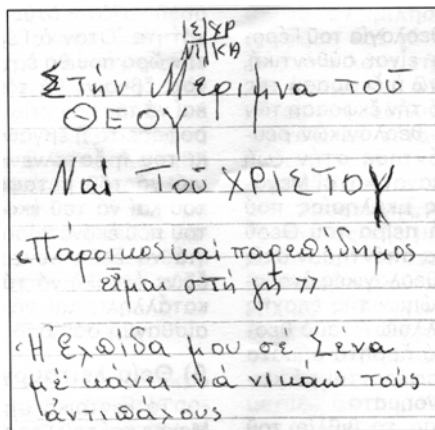 ΙΣ ΧΡ
ΝΙ ΚΑ
Στήν Μέριμνα τοῦ
ΘΕΟΥ
Ναί Τοῦ ΧΡΙΣΤΟΥ
«Πάροικος καί παρεπίδημος
εἶμαι στή γῆ»
Ἡ Ἐλπίδα μου σέ Σένα
μέ κάνει νά νικάω τούς
ἀντιπάλους